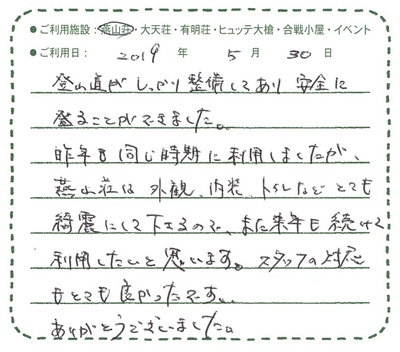 ●ご利用施設：燕山荘・大天荘・有明荘・ヒュッテ大槍・合戦小屋・イベント
●ご利用日： 2019 年 5 月 30 日
登山道がしっかり整備してあり安全に
登ることができました。
昨年も同じ時期に利用しましたが、
燕山荘は外観、内装、トイレなどとても
綺麗にして下さるので、また来年も続けて
利用したいと思います。スタッフの対応
もとても良かったです。
ありがとうございました。